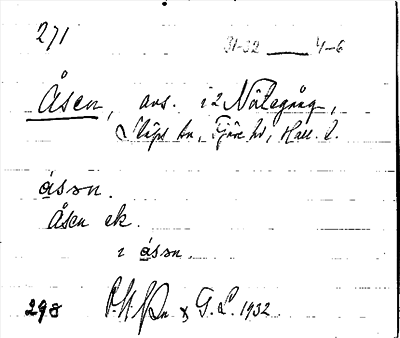 271
31-32 ___ 4-6
Åsen, avs. i 2 Nötegång,
Släps sn, Fjäre hd, Hall. l.
åsən.
Åsen ek.
i åsən.
298 & G. L. 1932